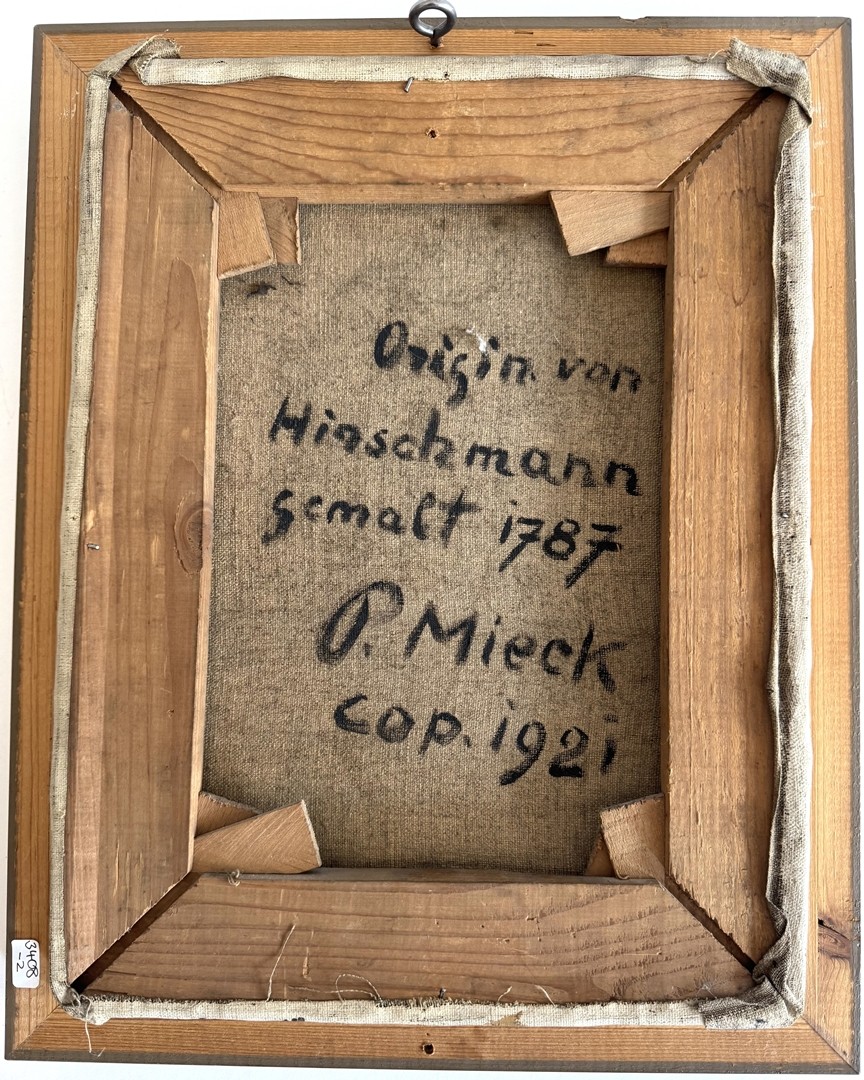 Origin. von
Hinschmann
gemalt 1787
P. Mieck
cop. 1921
3408
-2